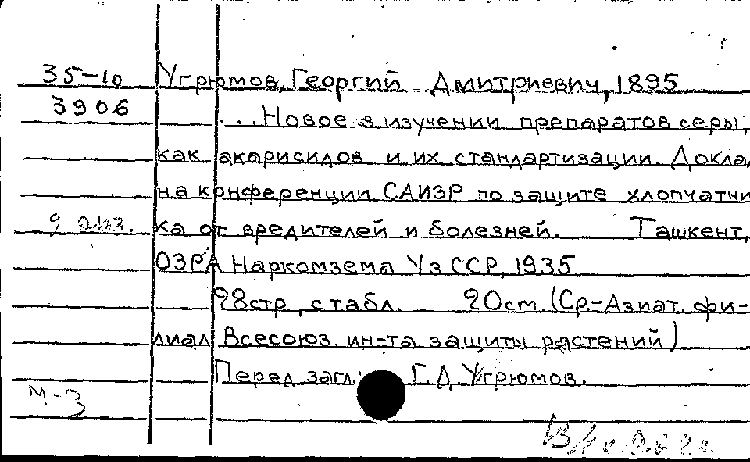 35-10 Угрюмов, Георгий Дмитриевич, 1895
3906 ...Новое в изучении препаратов серы,
как акарисидов и их стандартизации. Докла
на конференции САИЗР по защите хлопчатни
9 экз. ка от вредителей и болезней. Ташкент,
ОЗРА Наркомзема УзССР, 1935
28стр, с табл. 20см. (Ср-Азиат. фи-
лиал Всесоюз. ин-та защиты растений)
Перед загл. Г.Д. Угрюмов.
М-3